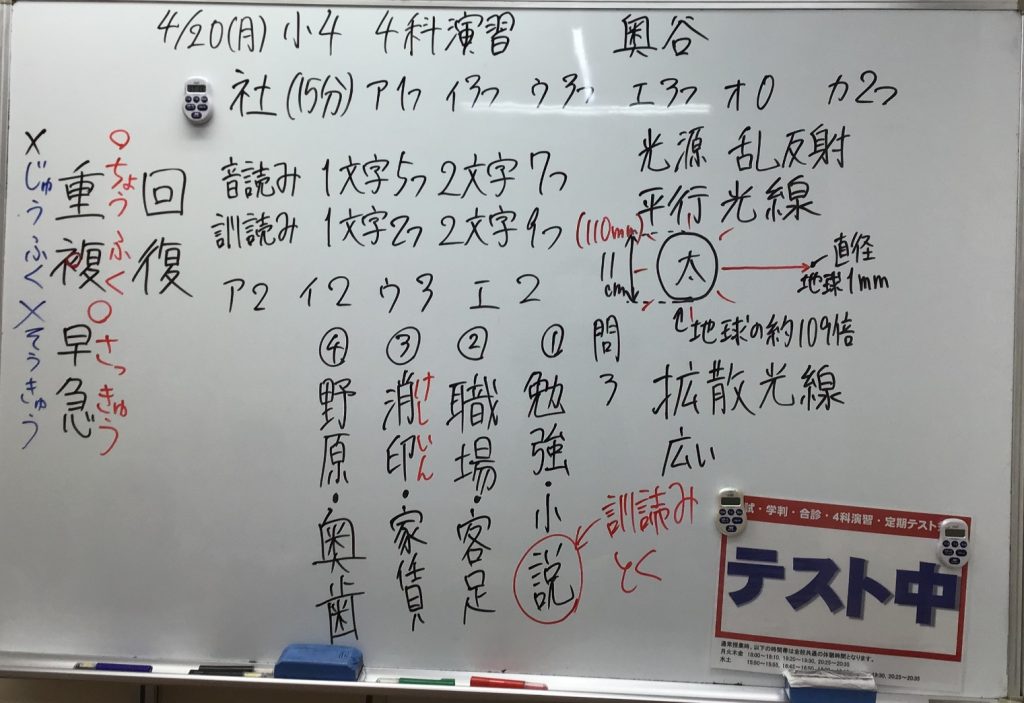 4/20(月) 小4 4科演習 奥谷
社(15分) ア1つ イ3つ ウ3つ エ3つ オ0 カ2つ
音読み 1文字5つ 2文字7つ
訓読み 1文字2つ 2文字9つ
ア2 イ2 ウ3 エ2
光源 乱反射
平行光線
(110mm)
11cm
太
直径
地球1mm
地球の約109倍
拡散光線
広い
問3
①勉強・小説
訓読み
とく
②職場・客足
③消印・家賃
けしいん
④野原・奥歯
回復
○ちょうふく
重複
×じゅうふく
○さっきゅう
早急
×そうきゅう
試・学判・合診・4科演習・定期テスト
テスト中
通常授業時、以下の時間帯は全校共通の休憩時間となります。
月火木金 18:00~18:10、19:20~19:30、20:25~20:35
水土